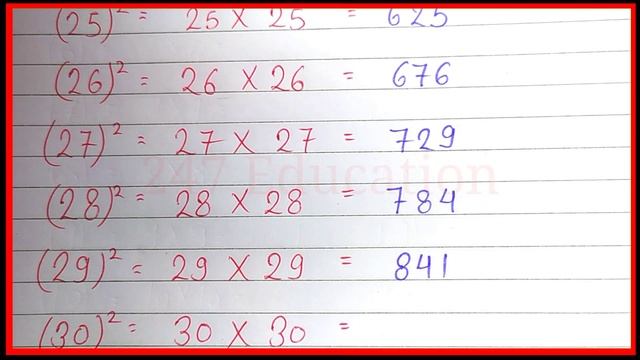 (25)² = 25 X 25 = 625
(26)² = 26 X 26 = 676
(27)² = 27 X 27 = 729
247 Education
(28)² = 28 X 28 = 784
(29)² = 29 X 29 = 841
(30)² = 30 X 30 =